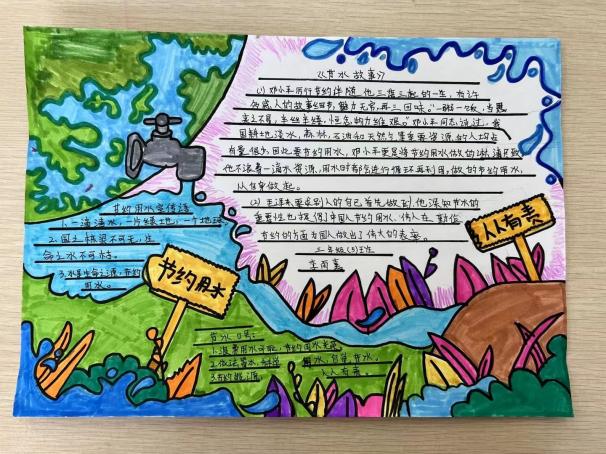 《节水故事》
(1) 邓小平厉行节约伴随他三落三起的一生，有许
多感人的故事细节，魅力无穷，再三回味。"一粥一饭，当思
来之不易，半丝半缕，恒念物力维艰。"邓小平同志说过，我
国耕地、淡水、森林、石油和天然气等重要资源的人均占
有量很少，因此要节约用水，邓小平更是将节约用水做的
他不浪费一滴水资源，用水时都会进行循环再利用，做的节约用水，
从自身做起。
(2) 毛泽东要求别人的自己首先做到，他深知节水的
重要性也提倡中国人节约用水，伟人在
节约的方面为国人做出了伟大的表率。
三年级(5)班
李雨
节约用水宣传语
1.一滴清水，一片绿地，一个地球。
2.国土
命之水不可
3.水是生命之源，节约
用水。
节约用水
人人有责
节水口号：
1.浪费用水可耻，节约用水光荣
2.依法 用水，自觉节水。
3.节约 源， 人人有责。